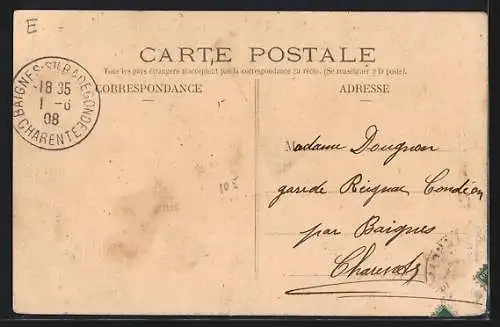 E
CARTE POSTALE
Tous les pays étrangers n'acceptent pas la correspondance au recto. (Se renseigner à la poste).
CORRESPONDANCE
ADRESSE
BAIGNES-STE RADEGONDE
18 35
1 - 6
08
CHARENTE
Madame Dougnon
gare de Reignac Condéon
par Baignes
Charente
105